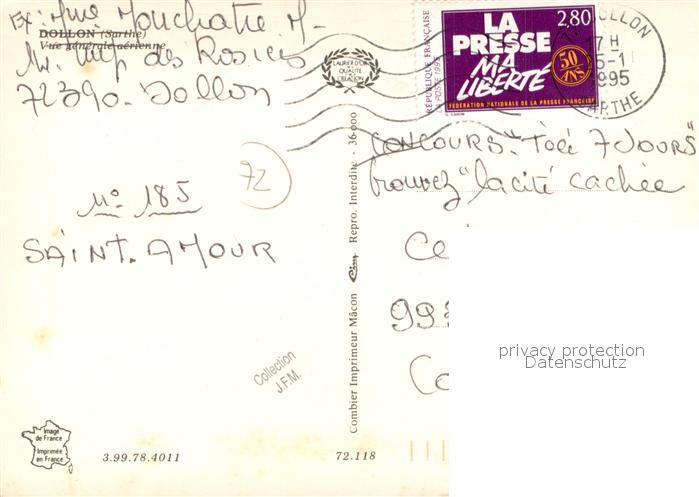 EX: Mme Mouchatre M-
DOLLON (Sarthe)
Vue générale aérienne
des Rosiers
72390 Dollon
72
N° 185
SAINT. AMOUR
Collection
J.F.M.
Image
de France
Imprimée
en France
3.99.78.4011
72.118
Combier Imprimeur Mâcon Cim Repro. Interdite - 36-000
LAURIER D'OR
QUALITÉ
CRÉATION
RÉPUBLIQUE FRANÇAISE
LA POSTE 1995
LA
PRESSE
MA
LIBERTÉ
2,80
50
ANS
FÉDÉRATION NATIONALE DE LA PRESSE FRANÇAISE
DOLLON
17 H
1995
SARTHE
CONCOURS "Télé 7 JOURS"
trouvez "la cité cachée
Ce
992
Ce
privacy protection
Datenschutz